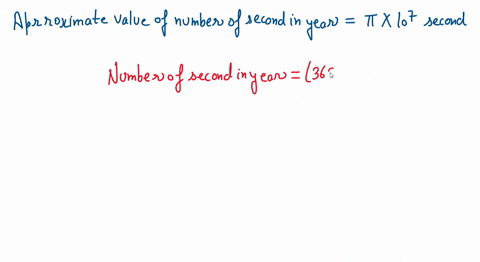 Aprroximate value of number of second in year = π × 10⁷ second
Number of second in year = (365